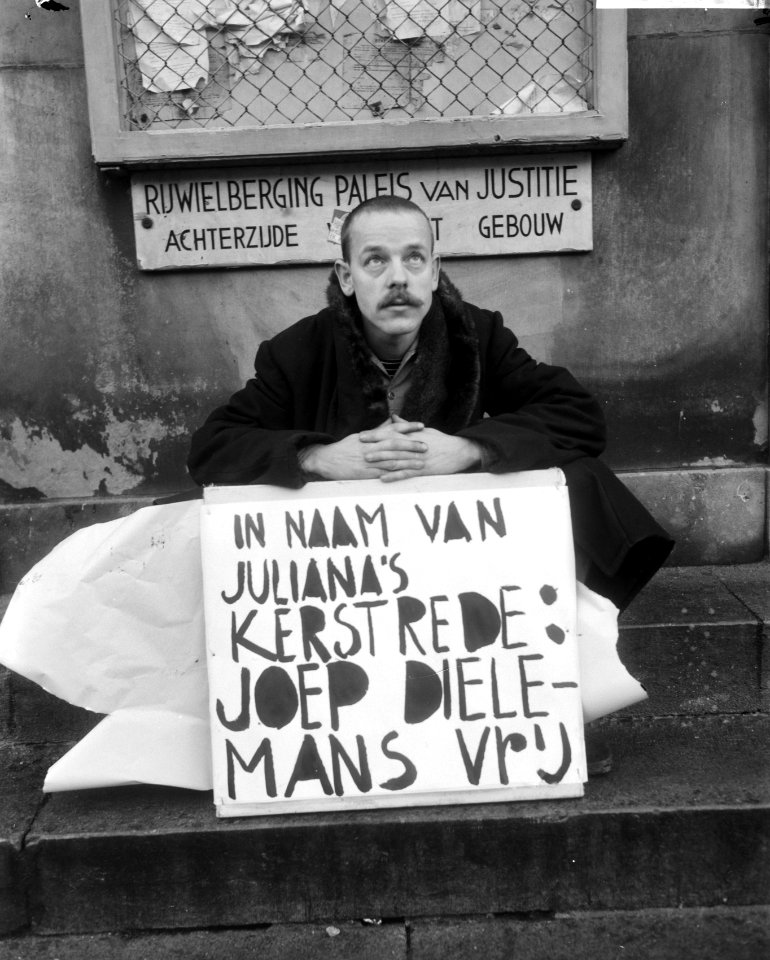 RIJWIELBERGING PALEIS VAN JUSTITIE
ACHTERZIJDE GEBOUW
IN NAAM VAN
JULIANA'S
KERSTREDE:
JOEP DIELE-
MANS VRIJ